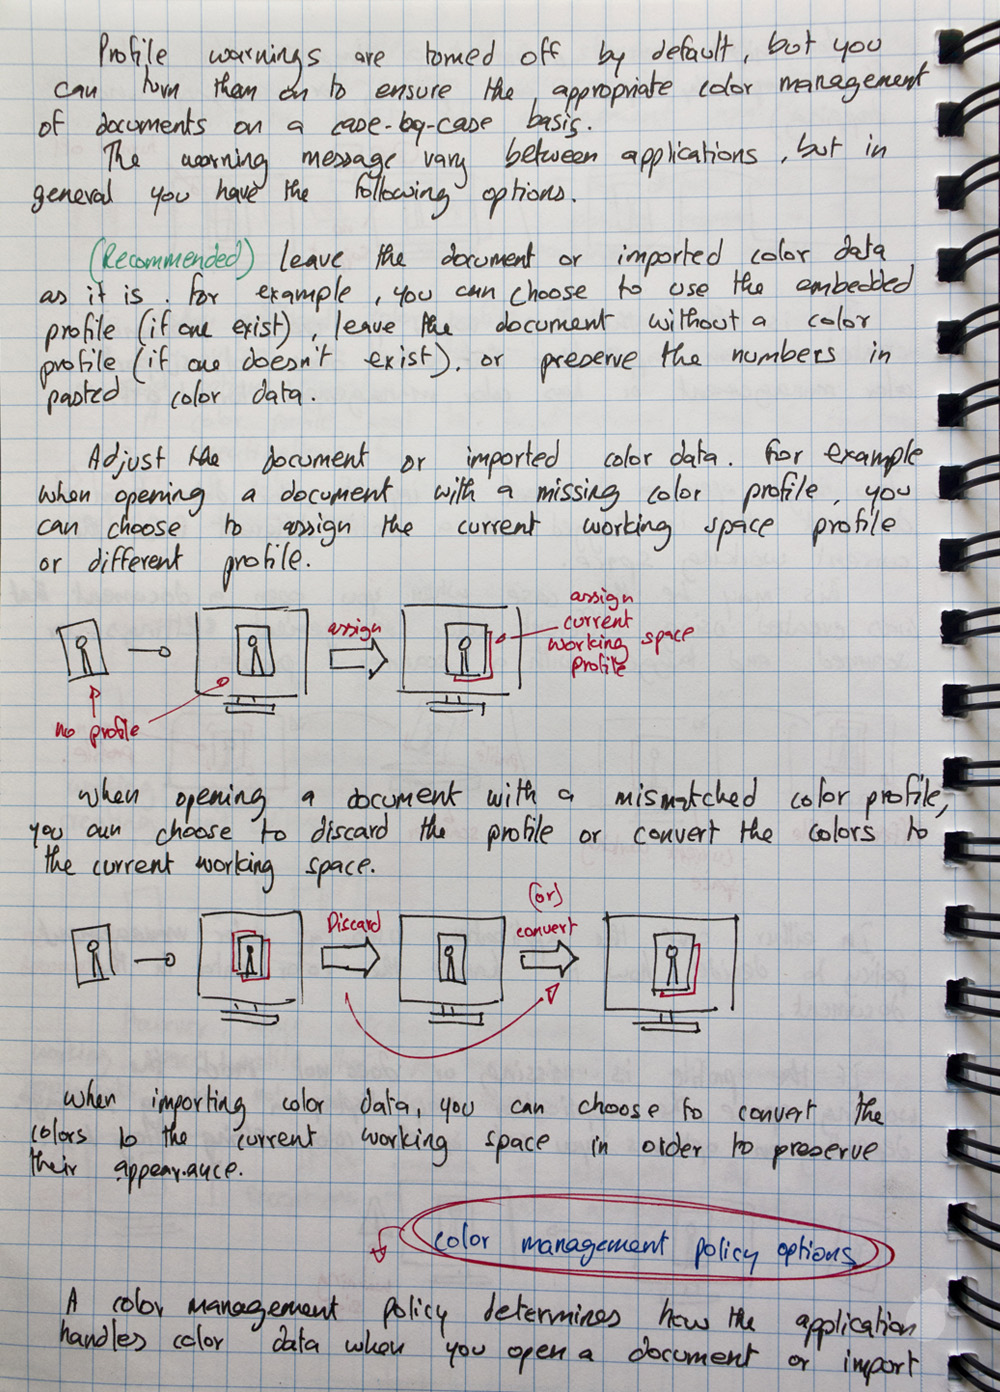 Profile warnings are torned off by default, but you
can turn them on to ensure the appropriate color management
of documents on a case-by-case basis.
The warning message vary between applications, but in
general you have the following options.
(Recommended) leave the document or imported color data
as it is. For example, you can choose to use the embedded
profile (if one exist), leave the document without a color
profile (if one doesn't exist), or preserve the numbers in
pasted color data.
Adjust the document or imported color data. For example
when opening a document with a missing color profile, you
can choose to assign the current working space profile
or different profile.
assign
assign
current
working space
profile
no profile
when opening a document with a mismatched color profile,
you can choose to discard the profile or convert the colors to
the current working space.
Discard
(or)
convert
when importing color data, you can choose to convert the
colors to the current working space in order to preserve
their appearance.
color management policy options
A color management policy determines how the application
handles color data when you open a document or import